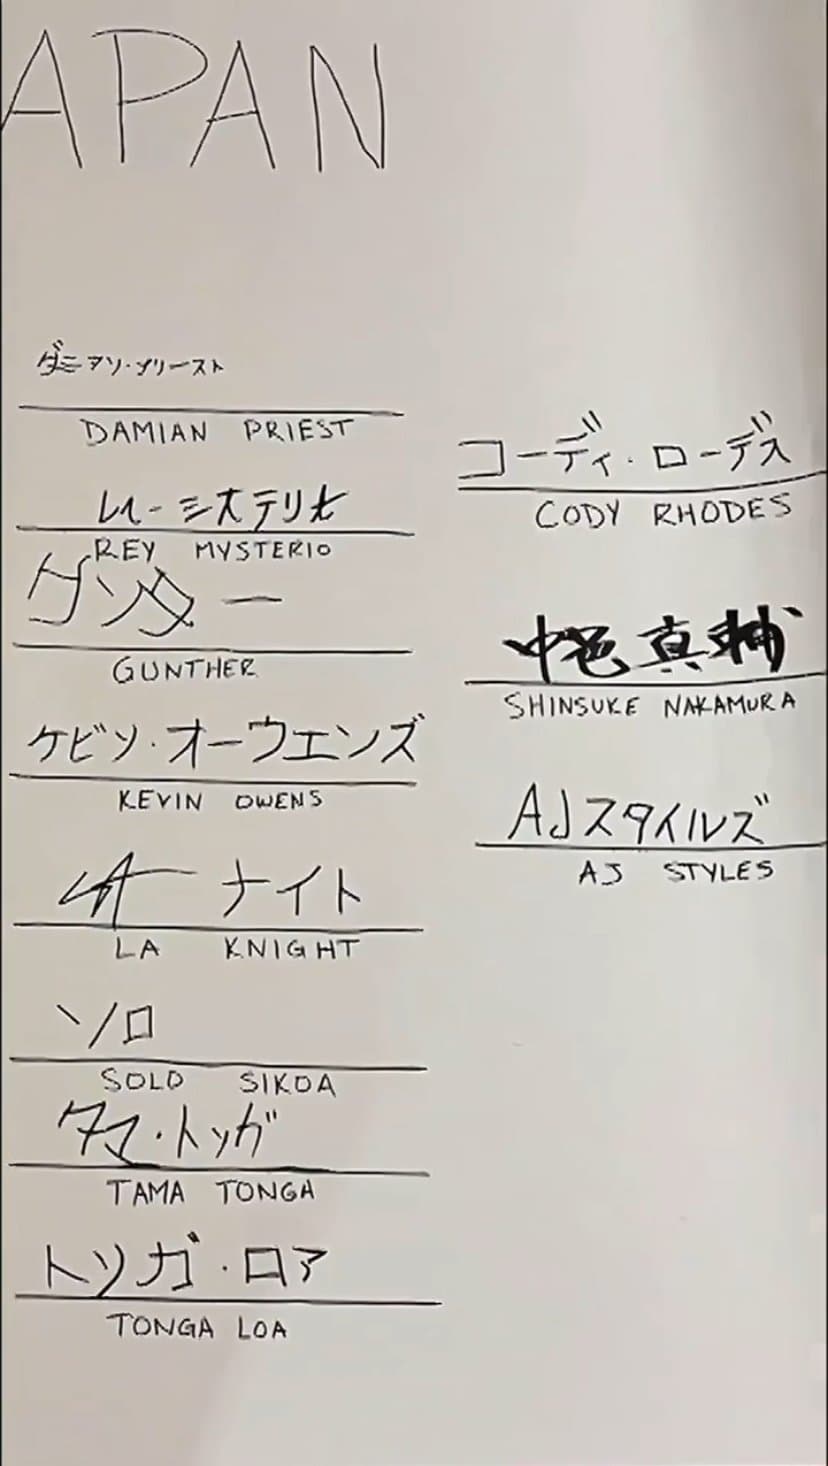 APAN
ダミアソ・プリースト
DAMIAN PRIEST
レイ・ミステリオ
REY MYSTERIO
グンター
GUNTHER
ケビソ・オーウエンズ
KEVIN OWENS
LA ナイト
LA KNIGHT
ソロ
SOLO SIKOA
タマ・トソガ
TAMA TONGA
トソガ・ロア
TONGA LOA
コーディ・ローデス
CODY RHODES
中邑真輔
SHINSUKE NAKAMURA
AJスタイルズ
AJ STYLES